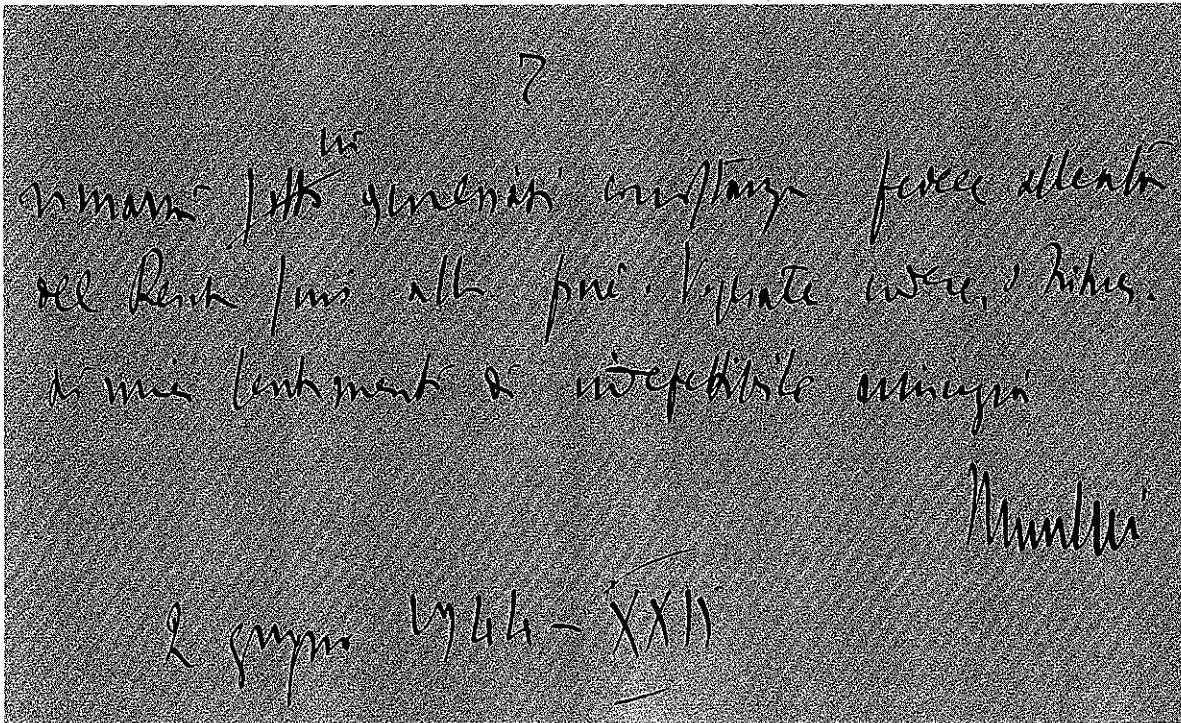 7
in
rimarrà sotto qualsiasi fedele alleata
del Reich sino alla fine. Vogliate credere, o Führer.
ai miei sentimenti di indefettibile amicizia
Mussolini
2 giugno 1944 - XXII